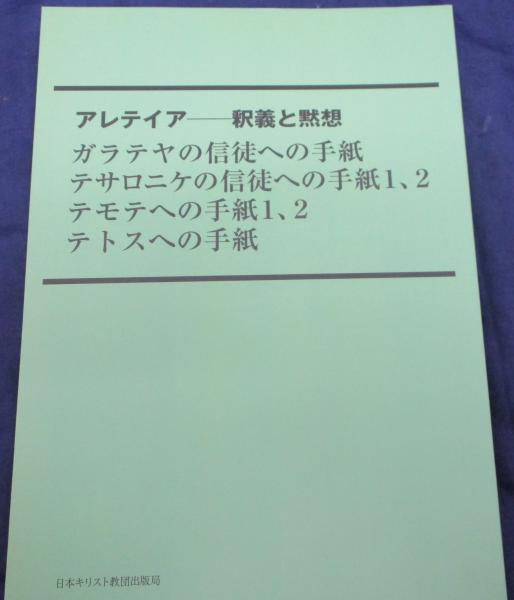 アレテイア——釈義と黙想
ガラテヤの信徒への手紙
テサロニケの信徒への手紙1、2
テモテへの手紙1、2
テトスへの手紙
日本キリスト教団出版局